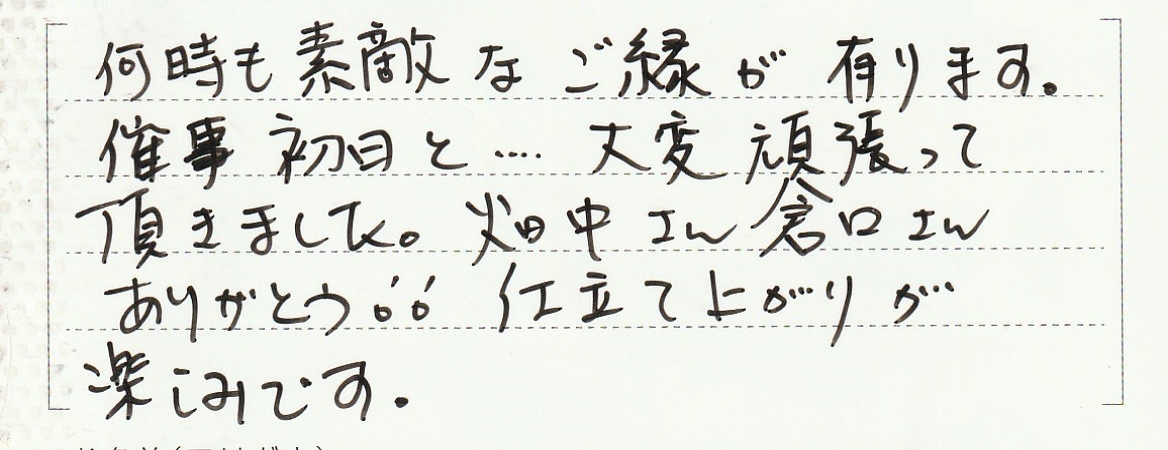 何時も素敵なご縁が有ります。
催事初日と‥‥大変頑張って
頂きました。畑中さん倉口さん
ありがとう!! 仕立て上がりが
楽しみです。